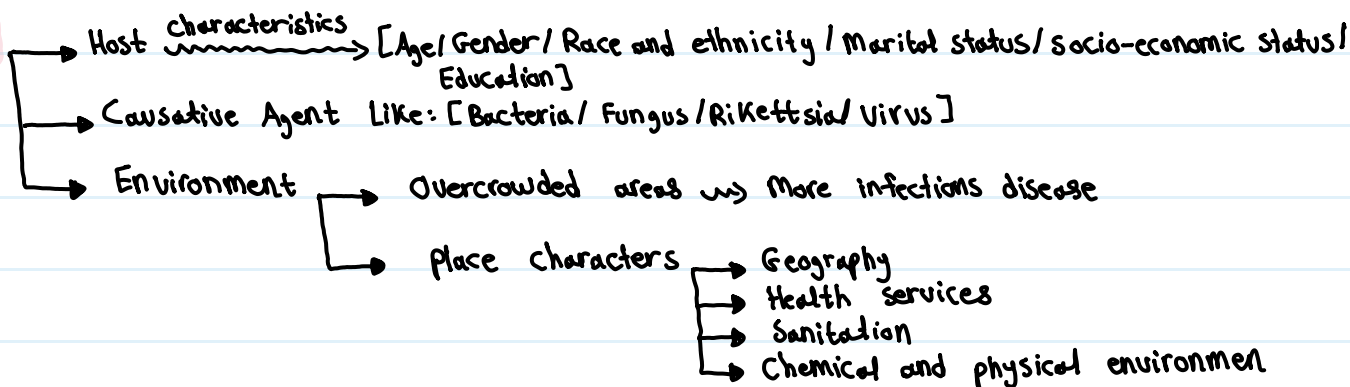 Host characteristics [Age/ Gender/ Race and ethnicity / Marital status/ socio-economic status/
Education]
Causative Agent Like: [Bacteria/ Fungus/Rikettsia/ Virus]
Environment Overcrowded areas More infections disease
Place characters Geography
Health services
Sanitation
Chemical and physical environmen